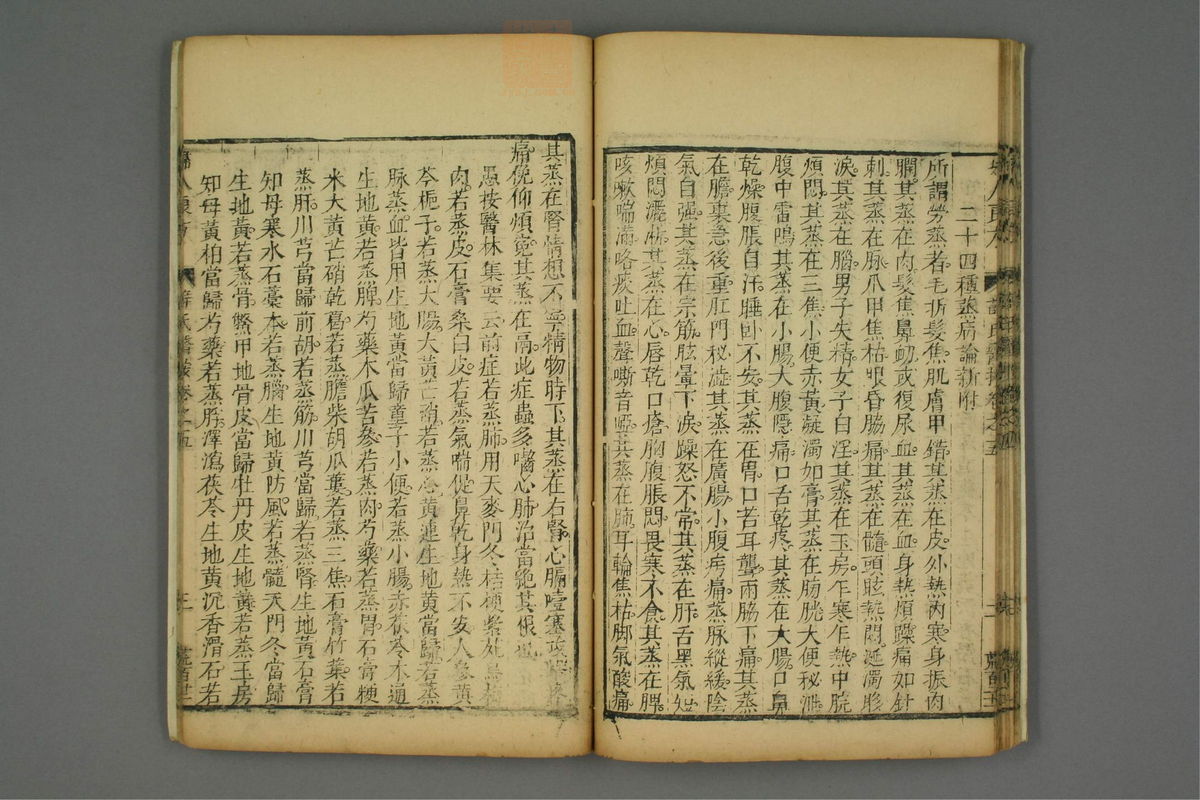 二十四種蒸病論新附
所謂勞蒸者毛折髮焦肌膚甲錯其蒸在皮外熱內寒身振肉
瞤其蒸在肉髮焦鼻衂或復尿血其蒸在血身熱煩躁痛如針
刺其蒸在脉爪甲焦枯眼昏脇痛其蒸在髓頭眩熱悶涎濁眵
淚其蒸在腦男子失精女子白淫其蒸在玉房乍寒乍熱中脘
煩悶其蒸在三焦小便赤黃凝濁如膏其蒸在膀胱大便秘泄
腹中雷鳴其蒸在小腸大腹隱痛口舌乾疼其蒸在大腸口鼻
乾燥腹脹自汗睡卧不安其蒸在胃口苦耳聾兩脇下痛其蒸
在膽裏急後重肛門秘澁其蒸在廣腸小腹疞痛蒸脉縱緩陰
氣自强其蒸在宗筋眩暈下淚躁怒不常其蒸在肝舌黑氣短
煩悶灑淅其蒸在心唇乾口瘡胸腹脹悶畏寒不食其蒸在脾
咳嗽喘滿咯痰吐血聲嘶音啞其蒸在肺耳輪焦枯脚氣酸痛
其蒸在腎情想不寧精物時下其蒸在右腎心膈噎塞
痛俛仰煩寃其蒸在鬲此症蟲多嚙心肺治當絶其根也
愚按醫林集要云前症若蒸肺用天麥門冬桔梗紫苑烏梅
肉若蒸皮石膏桑白皮若蒸氣喘促鼻乾身熱不安人參黃
芩梔子若蒸大腸大黃芒硝若蒸心黃連生地黃當歸若蒸
脉蒸血皆用生地黃當歸童子小便若蒸小腸赤茯苓木通
生地黃若蒸脾芍藥木瓜苦參若蒸肉芍藥若蒸胃石膏粳
米大黃芒硝乾葛若蒸膽柴胡瓜蔞若蒸三焦石膏竹葉若
蒸肝川芎當歸前胡若蒸筋川芎當歸若蒸腎生地黃石膏
知母寒水石藁本若蒸腦生地黃防風若蒸髓天門冬當歸
生地黃若蒸骨鱉甲地骨皮當歸牡丹皮生地黃若蒸玉房
知母黃柏當歸芍藥若蒸脬澤瀉茯苓生地黃沉香滑石若
婦人良方 薛氏醫按卷之五 三